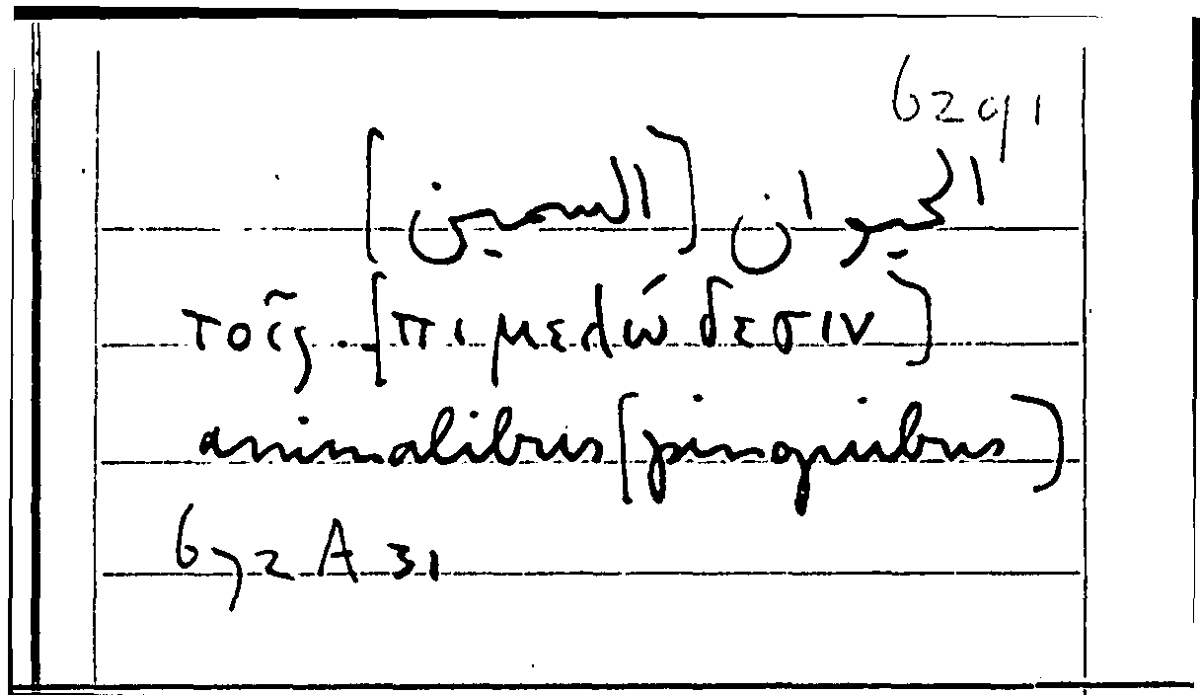 6291
الحيوان [السمين]
τοῖς . [πιμελώδεσιν]
animalibus [pinguibus]
672 A 31